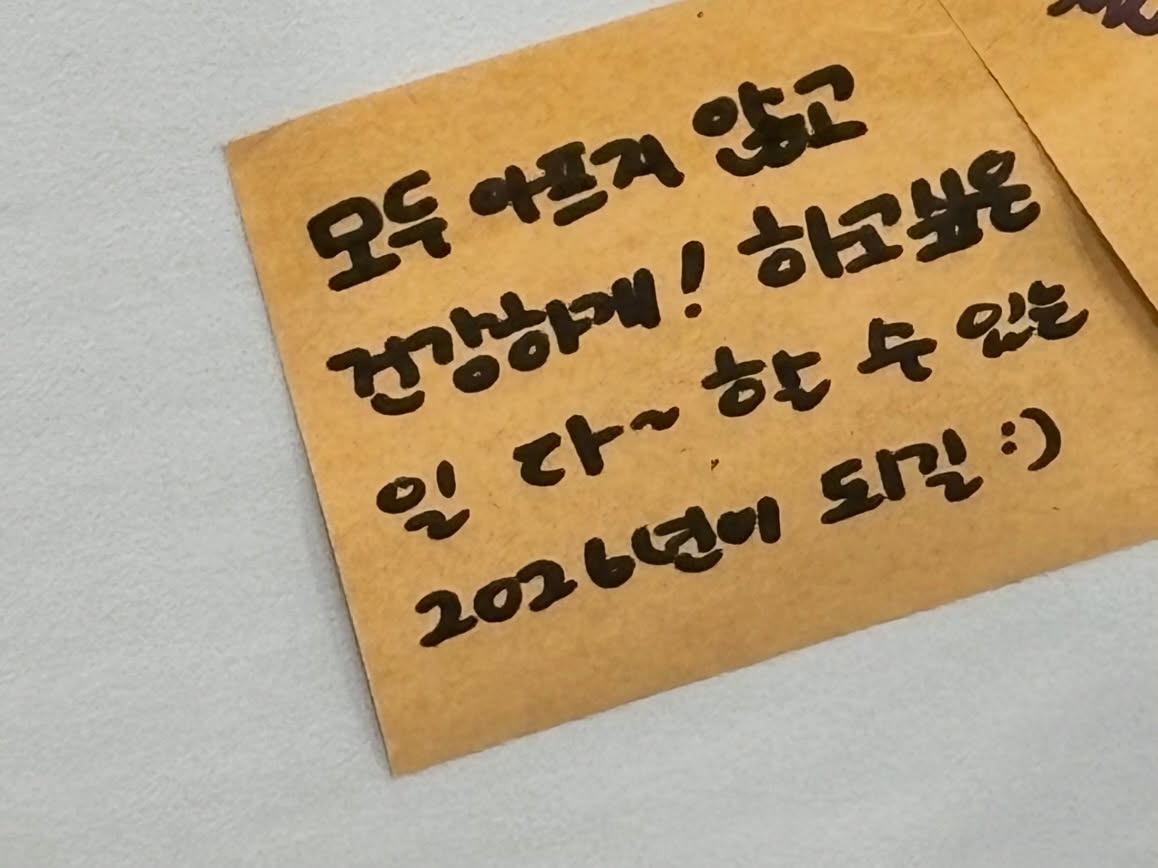 모두 아프지 않고
건강하게! 하고픈
일 다~ 할 수 있는
2026년이 되길 :)